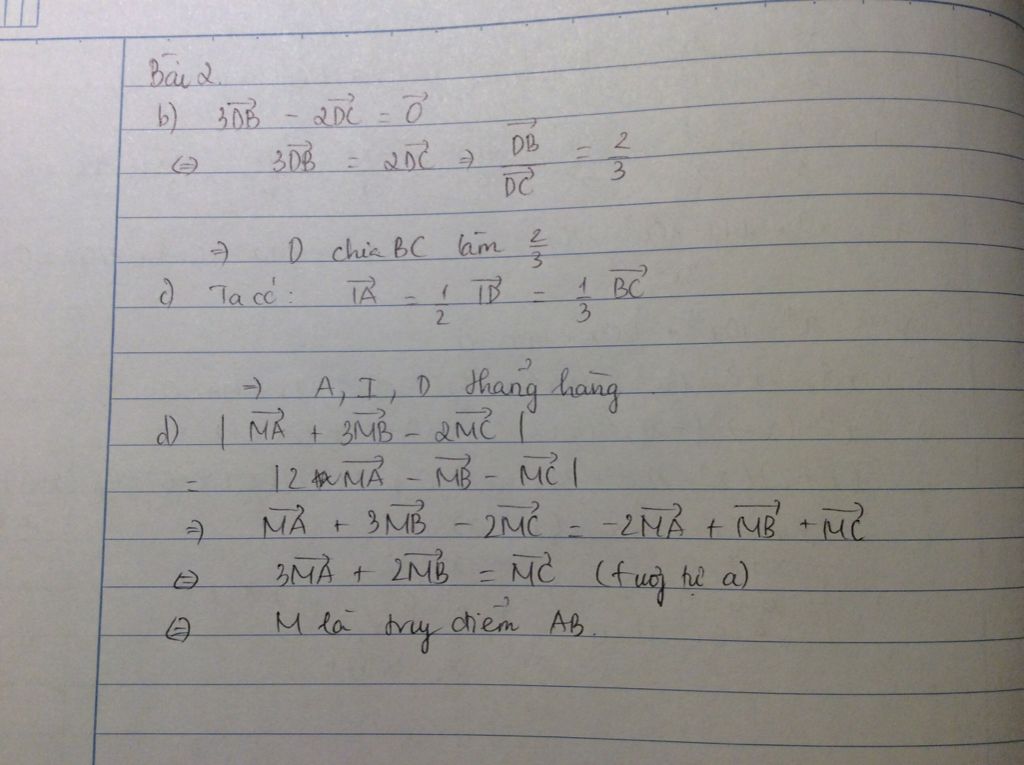 Bài 2.
b) 3\overrightarrow{DB} - 2\overrightarrow{DC} = \overrightarrow{0}
⇔ 3\overrightarrow{DB} = 2\overrightarrow{DC} ⇒ \frac{\overrightarrow{DB}}{\overrightarrow{DC}} = \frac{2}{3}
⇒ D chia BC làm \frac{2}{3}
c) Ta có: \overrightarrow{IA} = \frac{1}{2} \overrightarrow{ID} = \frac{1}{3} \overrightarrow{BC}
⇒ A, I, D thẳng hàng
d) | \overrightarrow{MA} + 3\overrightarrow{MB} - 2\overrightarrow{MC} |
= |2\overrightarrow{MA} - \overrightarrow{MB} - \overrightarrow{MC}|
⇒ \overrightarrow{MA} + 3\overrightarrow{MB} - 2\overrightarrow{MC} = -2\overrightarrow{MA} + \overrightarrow{MB} + \overrightarrow{MC}
⇔ 3\overrightarrow{MA} + 2\overrightarrow{MB} = \overrightarrow{MC} (tương tự a)
⇔ M là trung điểm AB.